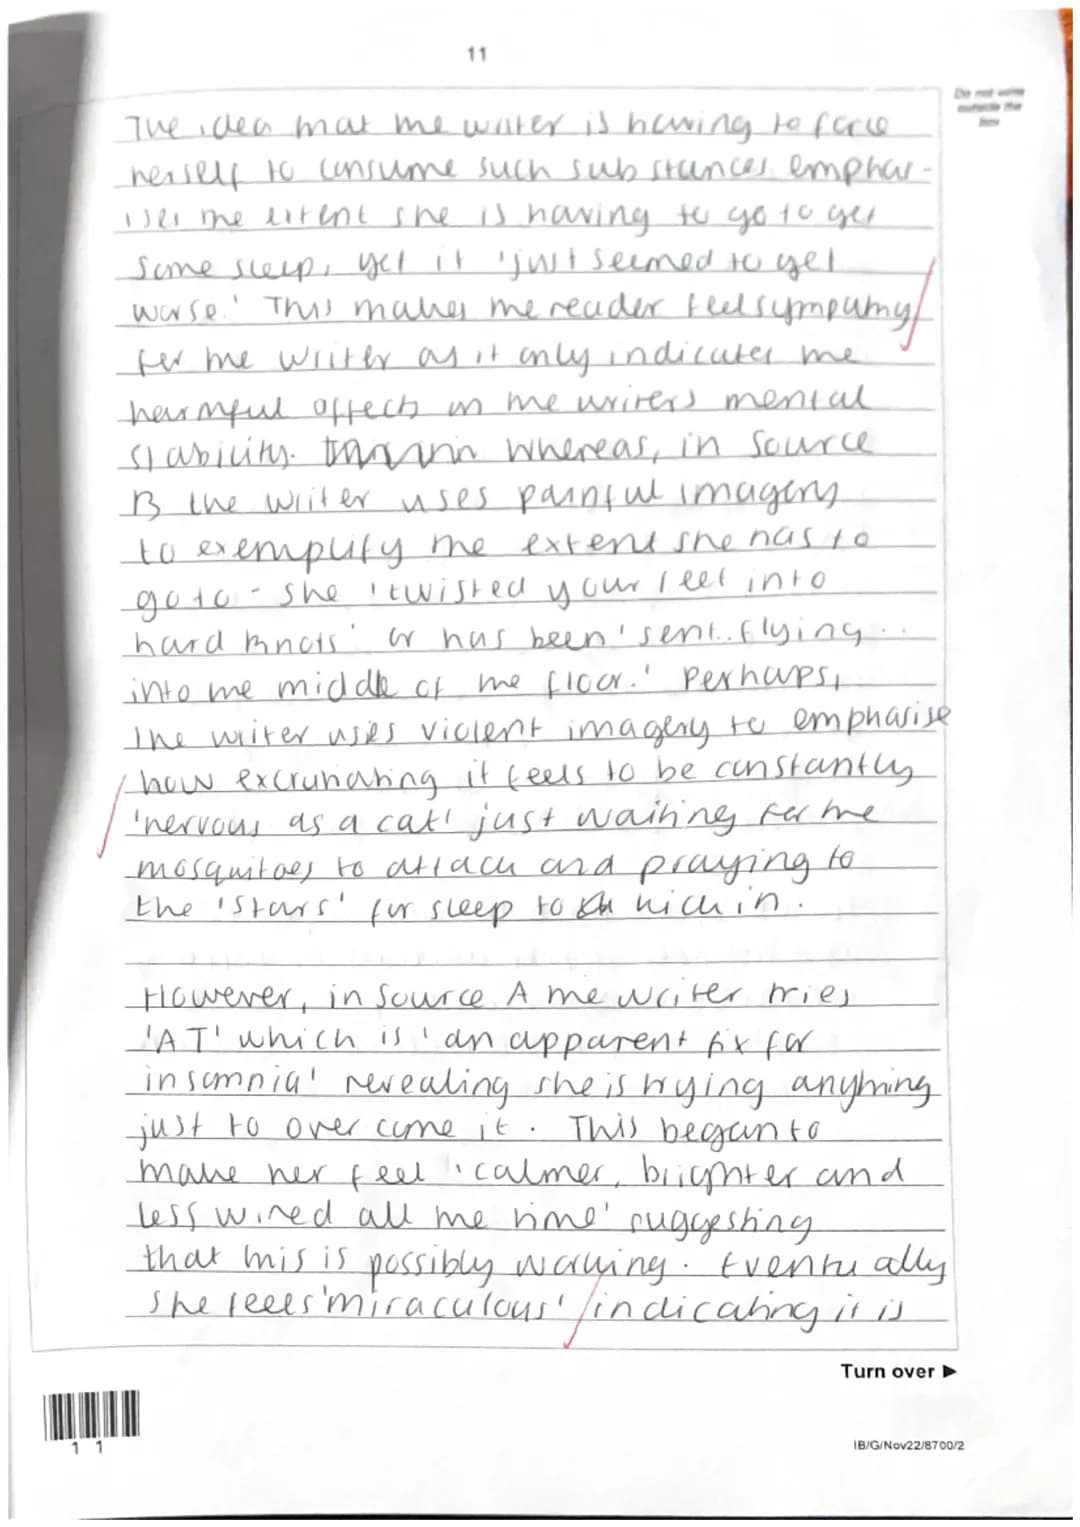 11
Do not write
outside the
box
The idea that the writer is having to force
herself to consume such substances emphas-
ises the extent she is having to go to get
some sleep, yet it 'just seemed to get
worse.' This makes the reader feel sympathy
for the writer as it only indicates the
harmful affects on the writers mental
stability. Whereas, in Source
B the writer uses painful imagery
to exemplify the extent she has to
go to - she 'twisted your feet into
hard knots' or has been 'sent.. flying ..
into the middle of the floor.' Perhaps,
the writer uses violent imagery to emphasise
how excruciating it feels to be constantly
'nervous as a cat' just waiting for the
mosquitoes to attack and praying to
the 'stars' for sleep to kick in.
However, in Source A the writer tries
'AT' which is 'an apparent fix for
insomnia' revealing she is trying anything
just to over come it. This began to
make her feel 'calmer, brighter and
less wired all the time' suggesting
that this is possibly working. Eventually
she feels 'miraculous' indicating it is
Turn over ►
1 1
IB/G/Nov22/8700/2